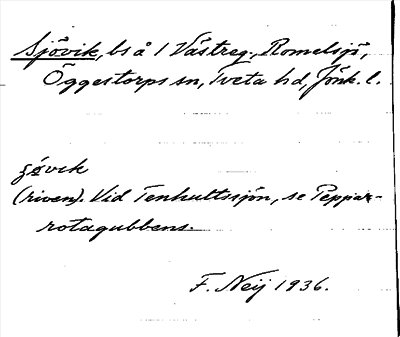 Sjövik, ls å 1 Västreg., Romelsjö,
Öggestorps sn, Tveta hd, Jönk. l.
(riven). Vid Tenhultssjön, se Peppar-
rotagubbens.
F. Neij 1936.